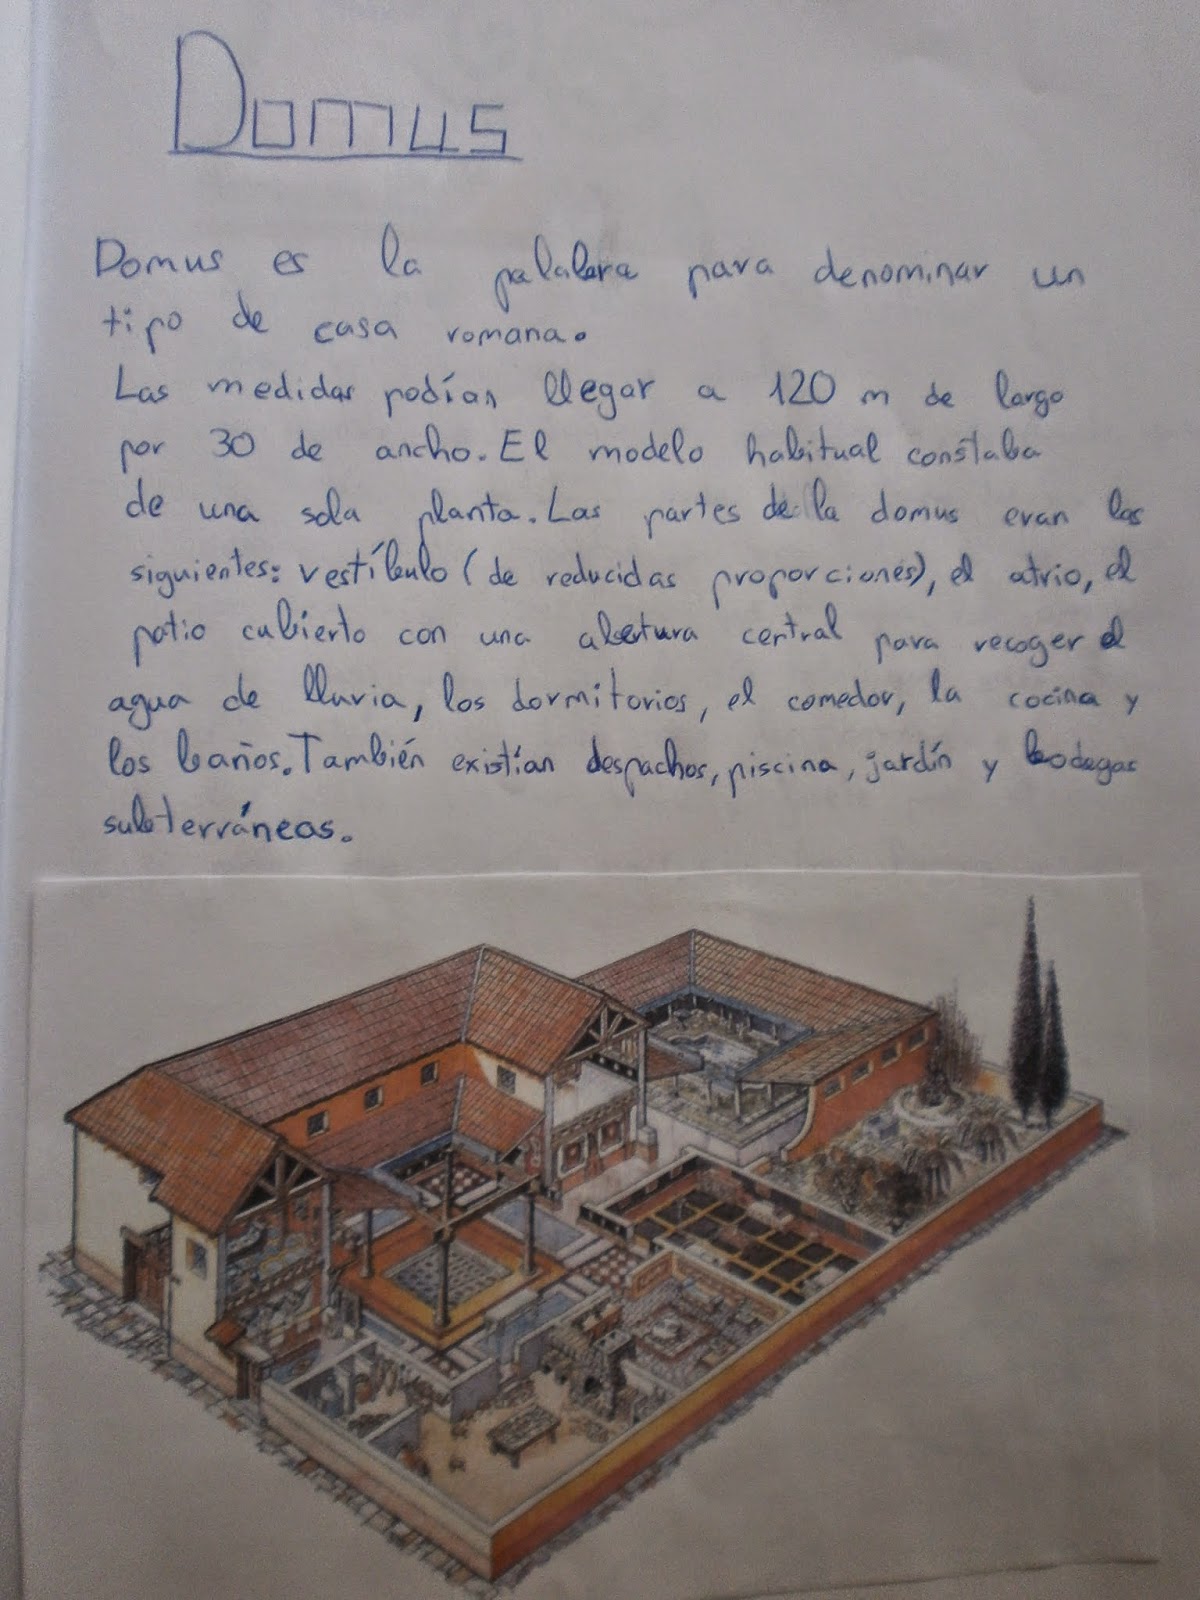 Domus
Domus es la palabra para denominar un
tipo de casa romana.
Las medidas podían llegar a 120 m de largo
por 30 de ancho. El modelo habitual constaba
de una sola planta. Las partes de la domus eran las
siguientes: vestíbulo (de reducidas proporciones), el atrio, el
patio cubierto con una abertura central para recoger el
agua de lluvia, los dormitorios, el comedor, la cocina y
los baños. También existían despachos, piscina, jardín y bodegas
subterráneas.